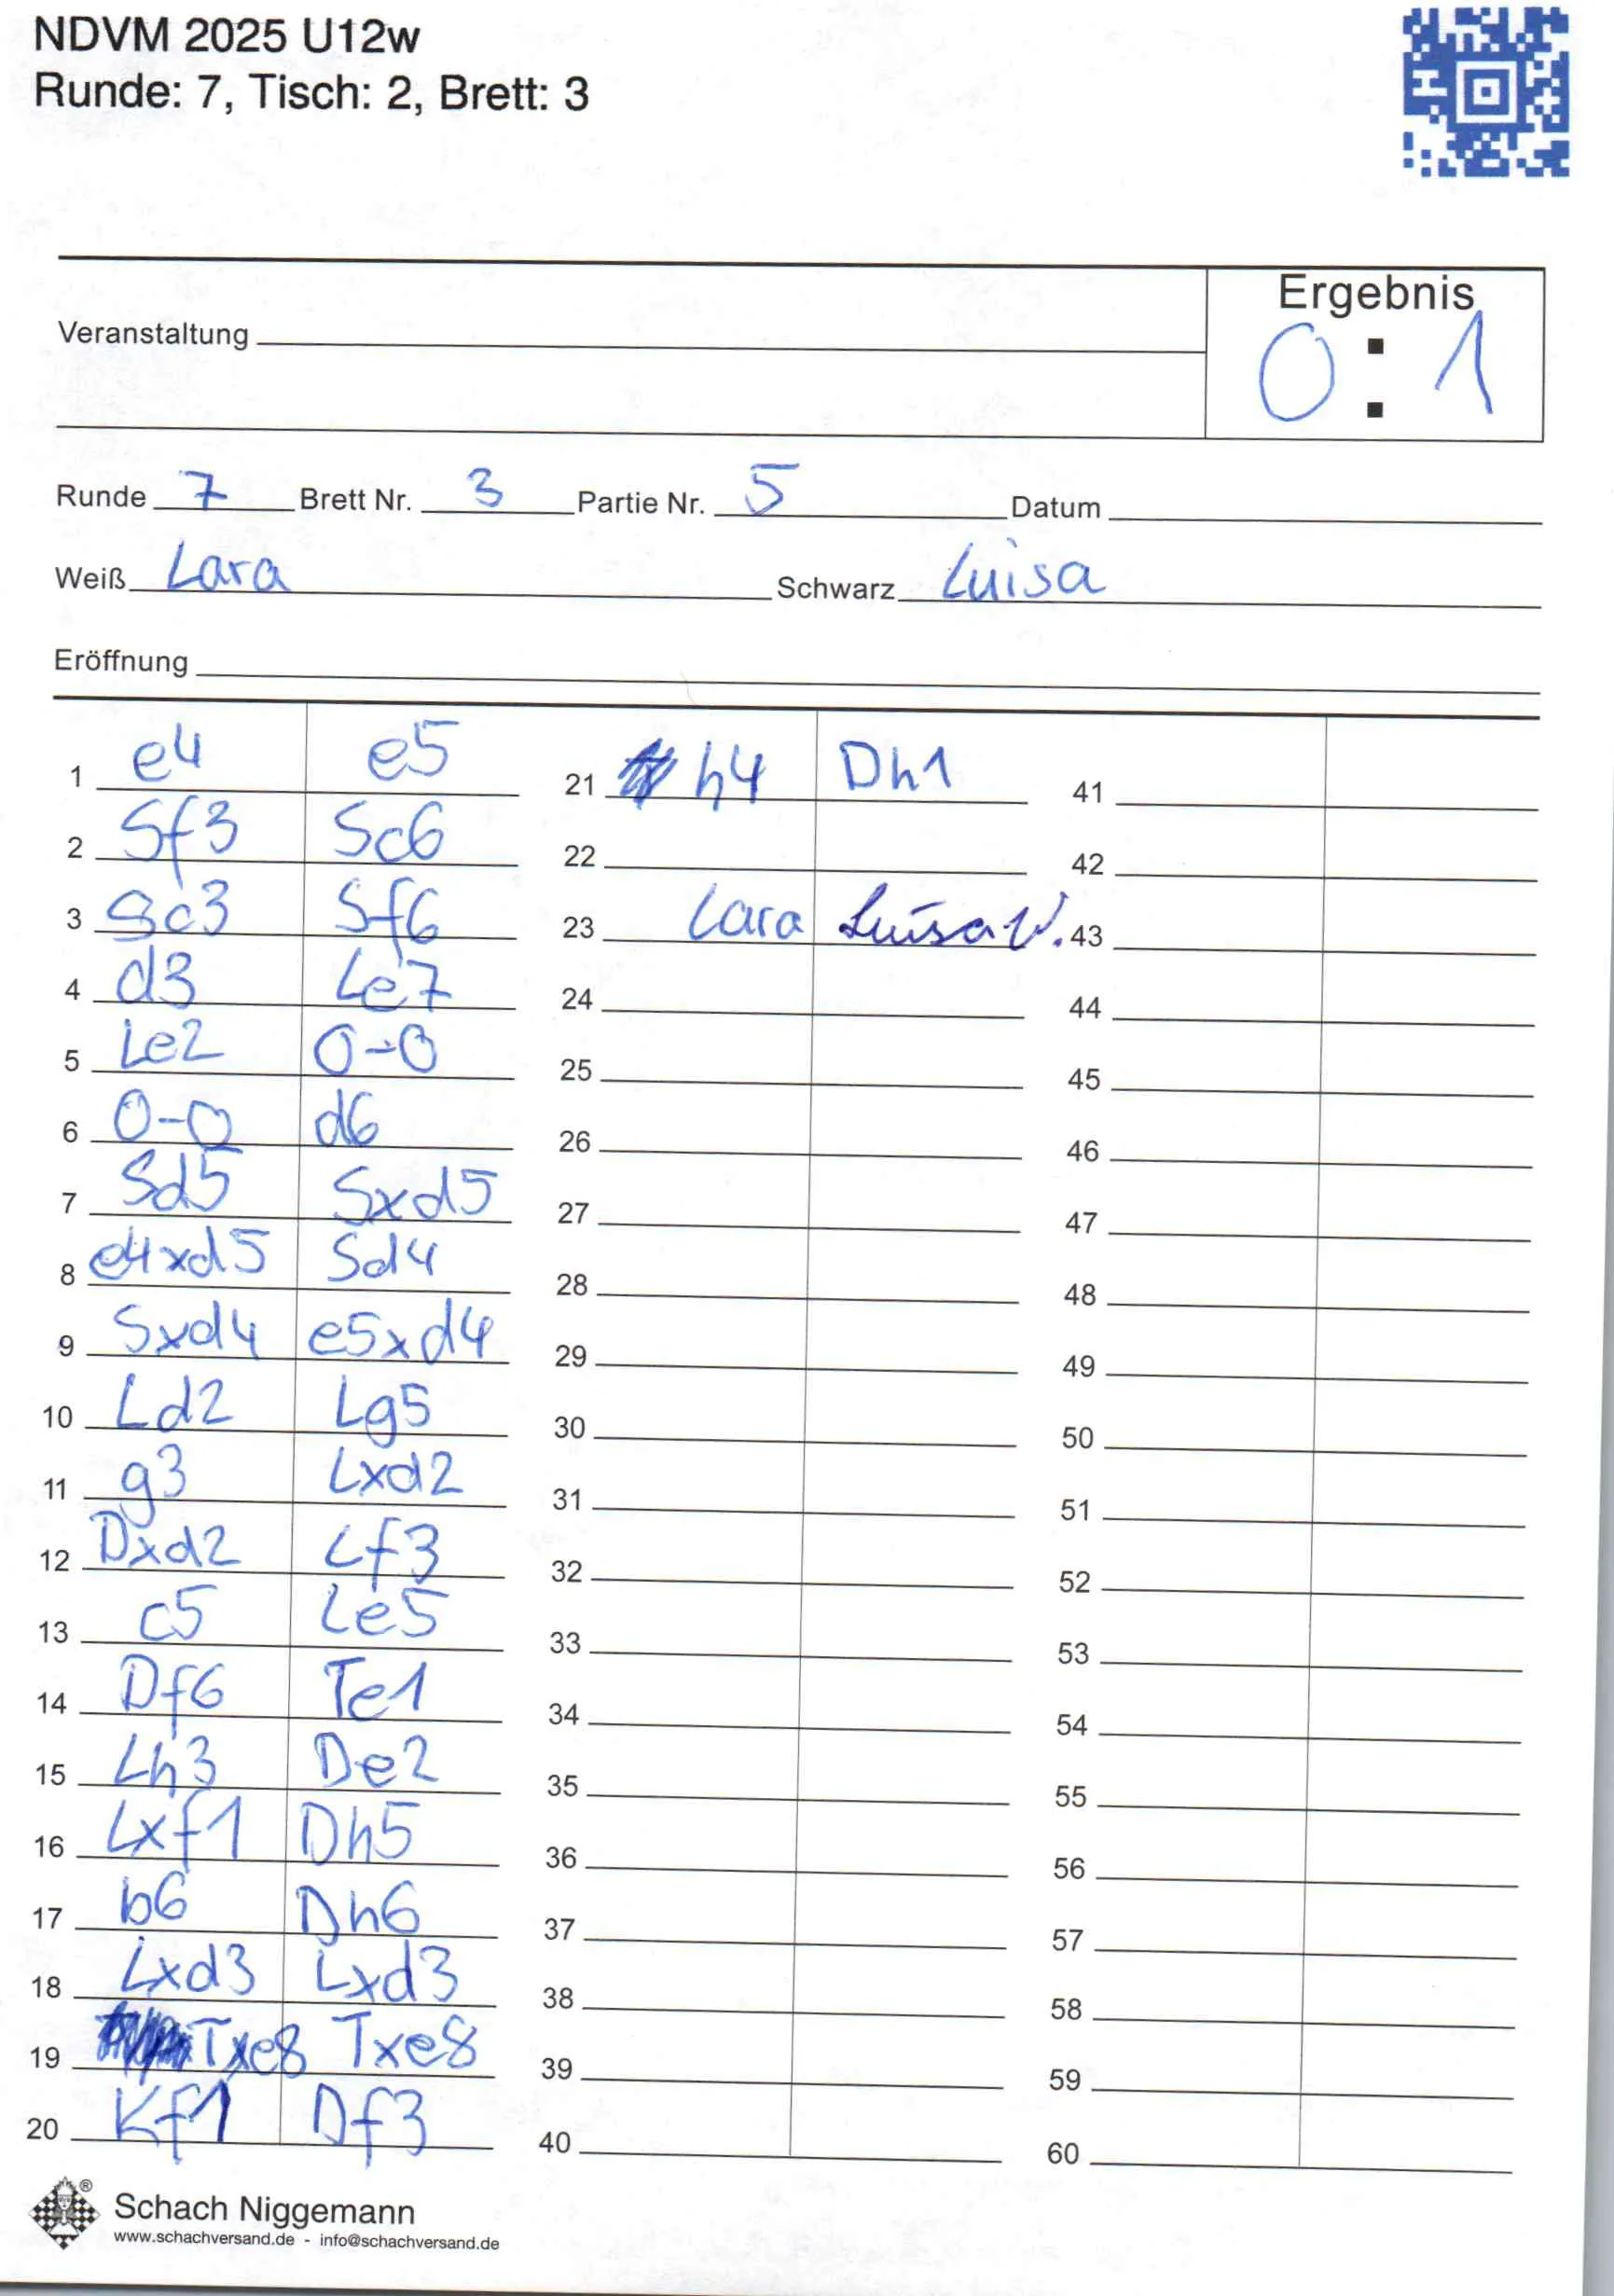 NDVM 2025 U12w
Runde: 7, Tisch: 2, Brett: 3
Ergebnis
0 : 1
Veranstaltung
Runde 7 Brett Nr. 3 Partie Nr. 5 Datum
Weiß Lara Schwarz Luisa
Eröffnung
1 e4 e5
2 Sf3 Sc6
3 Sc3 Sf6
4 d3 Le7
5 Le2 0-0
6 0-0 d6
7 Sd5 Sxd5
8 e4xd5 Sd4
9 Sxd4 e5xd4
10 Ld2 Lg5
11 g3 Lxd2
12 Dxd2 Lf3
13 c5 Le5
14 Df6 Te1
15 Lh3 De2
16 Lxf1 Dh5
17 b6 Dh6
18 Lxd3 Lxd3
19 Txe8 Txe8
20 Kf1 Df3
21 h4 Dh1
22
23 Lara Luisa W.
24
25
26
27
28
29
30
31
32
33
34
35
36
37
38
39
40
41
42
43
44
45
46
47
48
49
50
51
52
53
54
55
56
57
58
59
60
®
Schach Niggemann
www.schachversand.de - info@schachversand.de